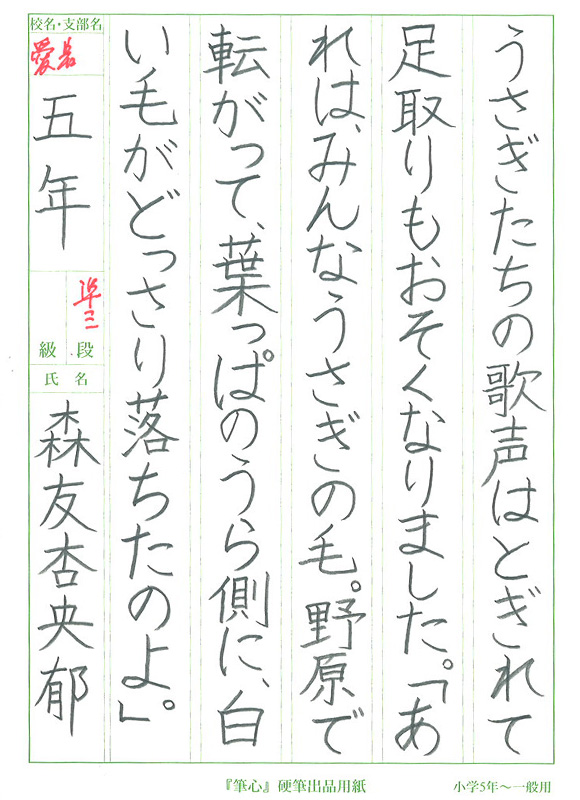 うさぎたちの歌声はとぎれて
足取りもおそくなりました。「あ
れは、みんなうさぎの毛。野原で
転がって、葉っぱのうら側に、白
い毛がどっさり落ちたのよ。」
校名・支部名
愛岩
五年
準三
級 段
氏名
森友杏央郁
『筆心』硬筆出品用紙
小学5年〜一般用